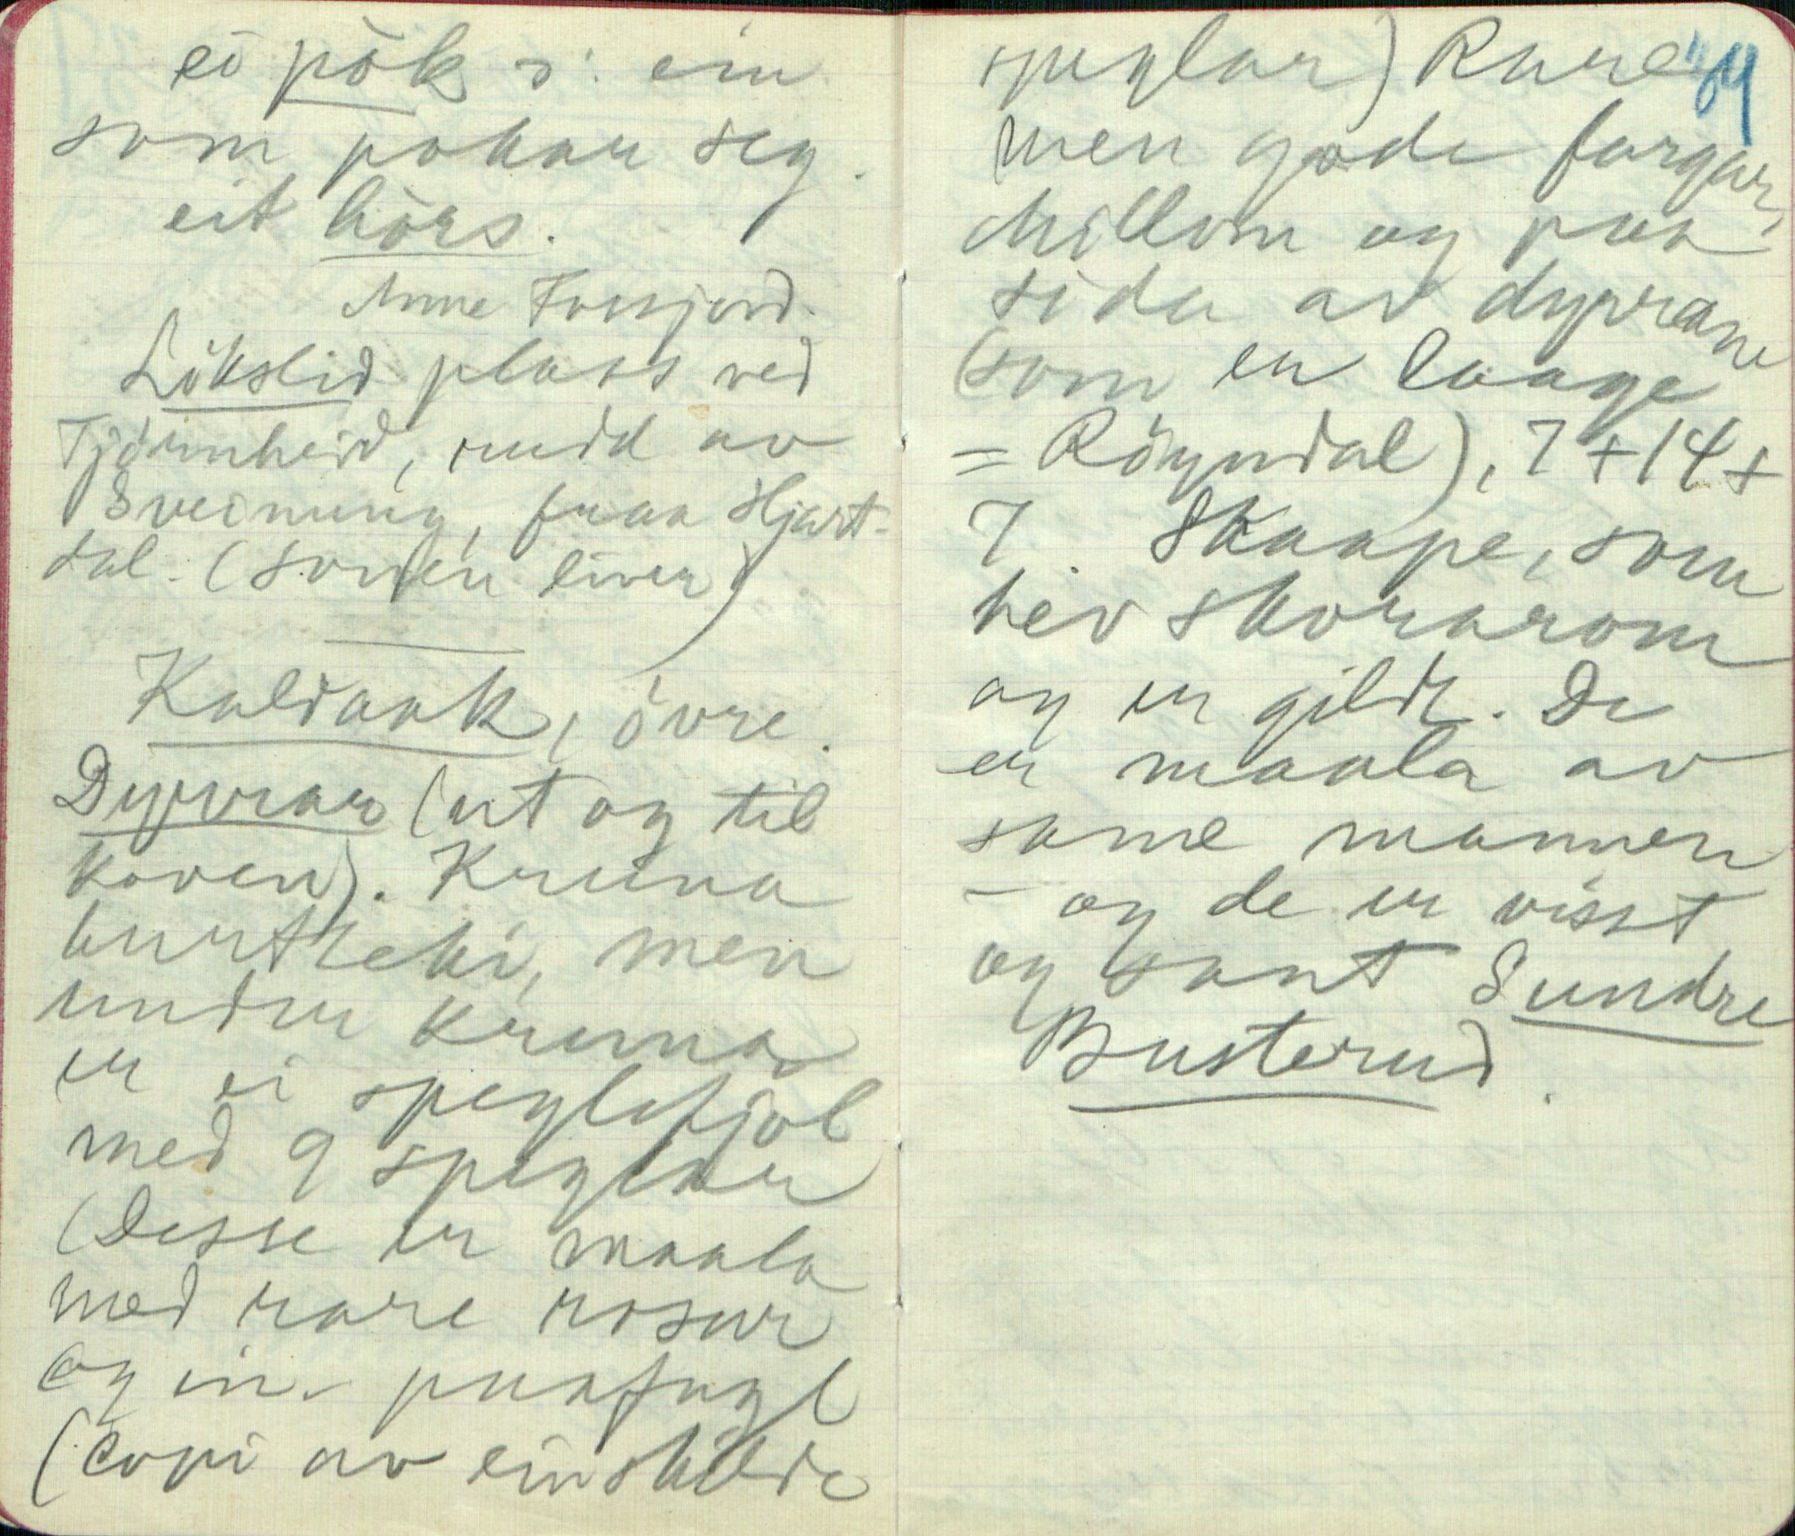 ei pök ɔ: ein
som pakar seg.
eit hörs.
Anne Fossjord.
Lökslid plass ved
Tjörnheid, rudd av
Sveinung, fraa Hjart-
dal. (sonen liver)
Kaldaak, övre.
Dyrrar (ut og til
koven). Kruna
burtteki, men
under kruna
er ei speglefjöl
med 9 speglar
(Desse er maala
med rare rosur
og ein paafugl
(copi av einskilde
speglar) Rare 64
men gode fargar
millom og paa
sida av dyrrane
(som er laage
= Röyndal), 7 + 14 +
7. Skaape, som
hev skorarom
og er gildt. De
er maala av
same mannen
– og de er visst
og sant Sundre
Busterud.